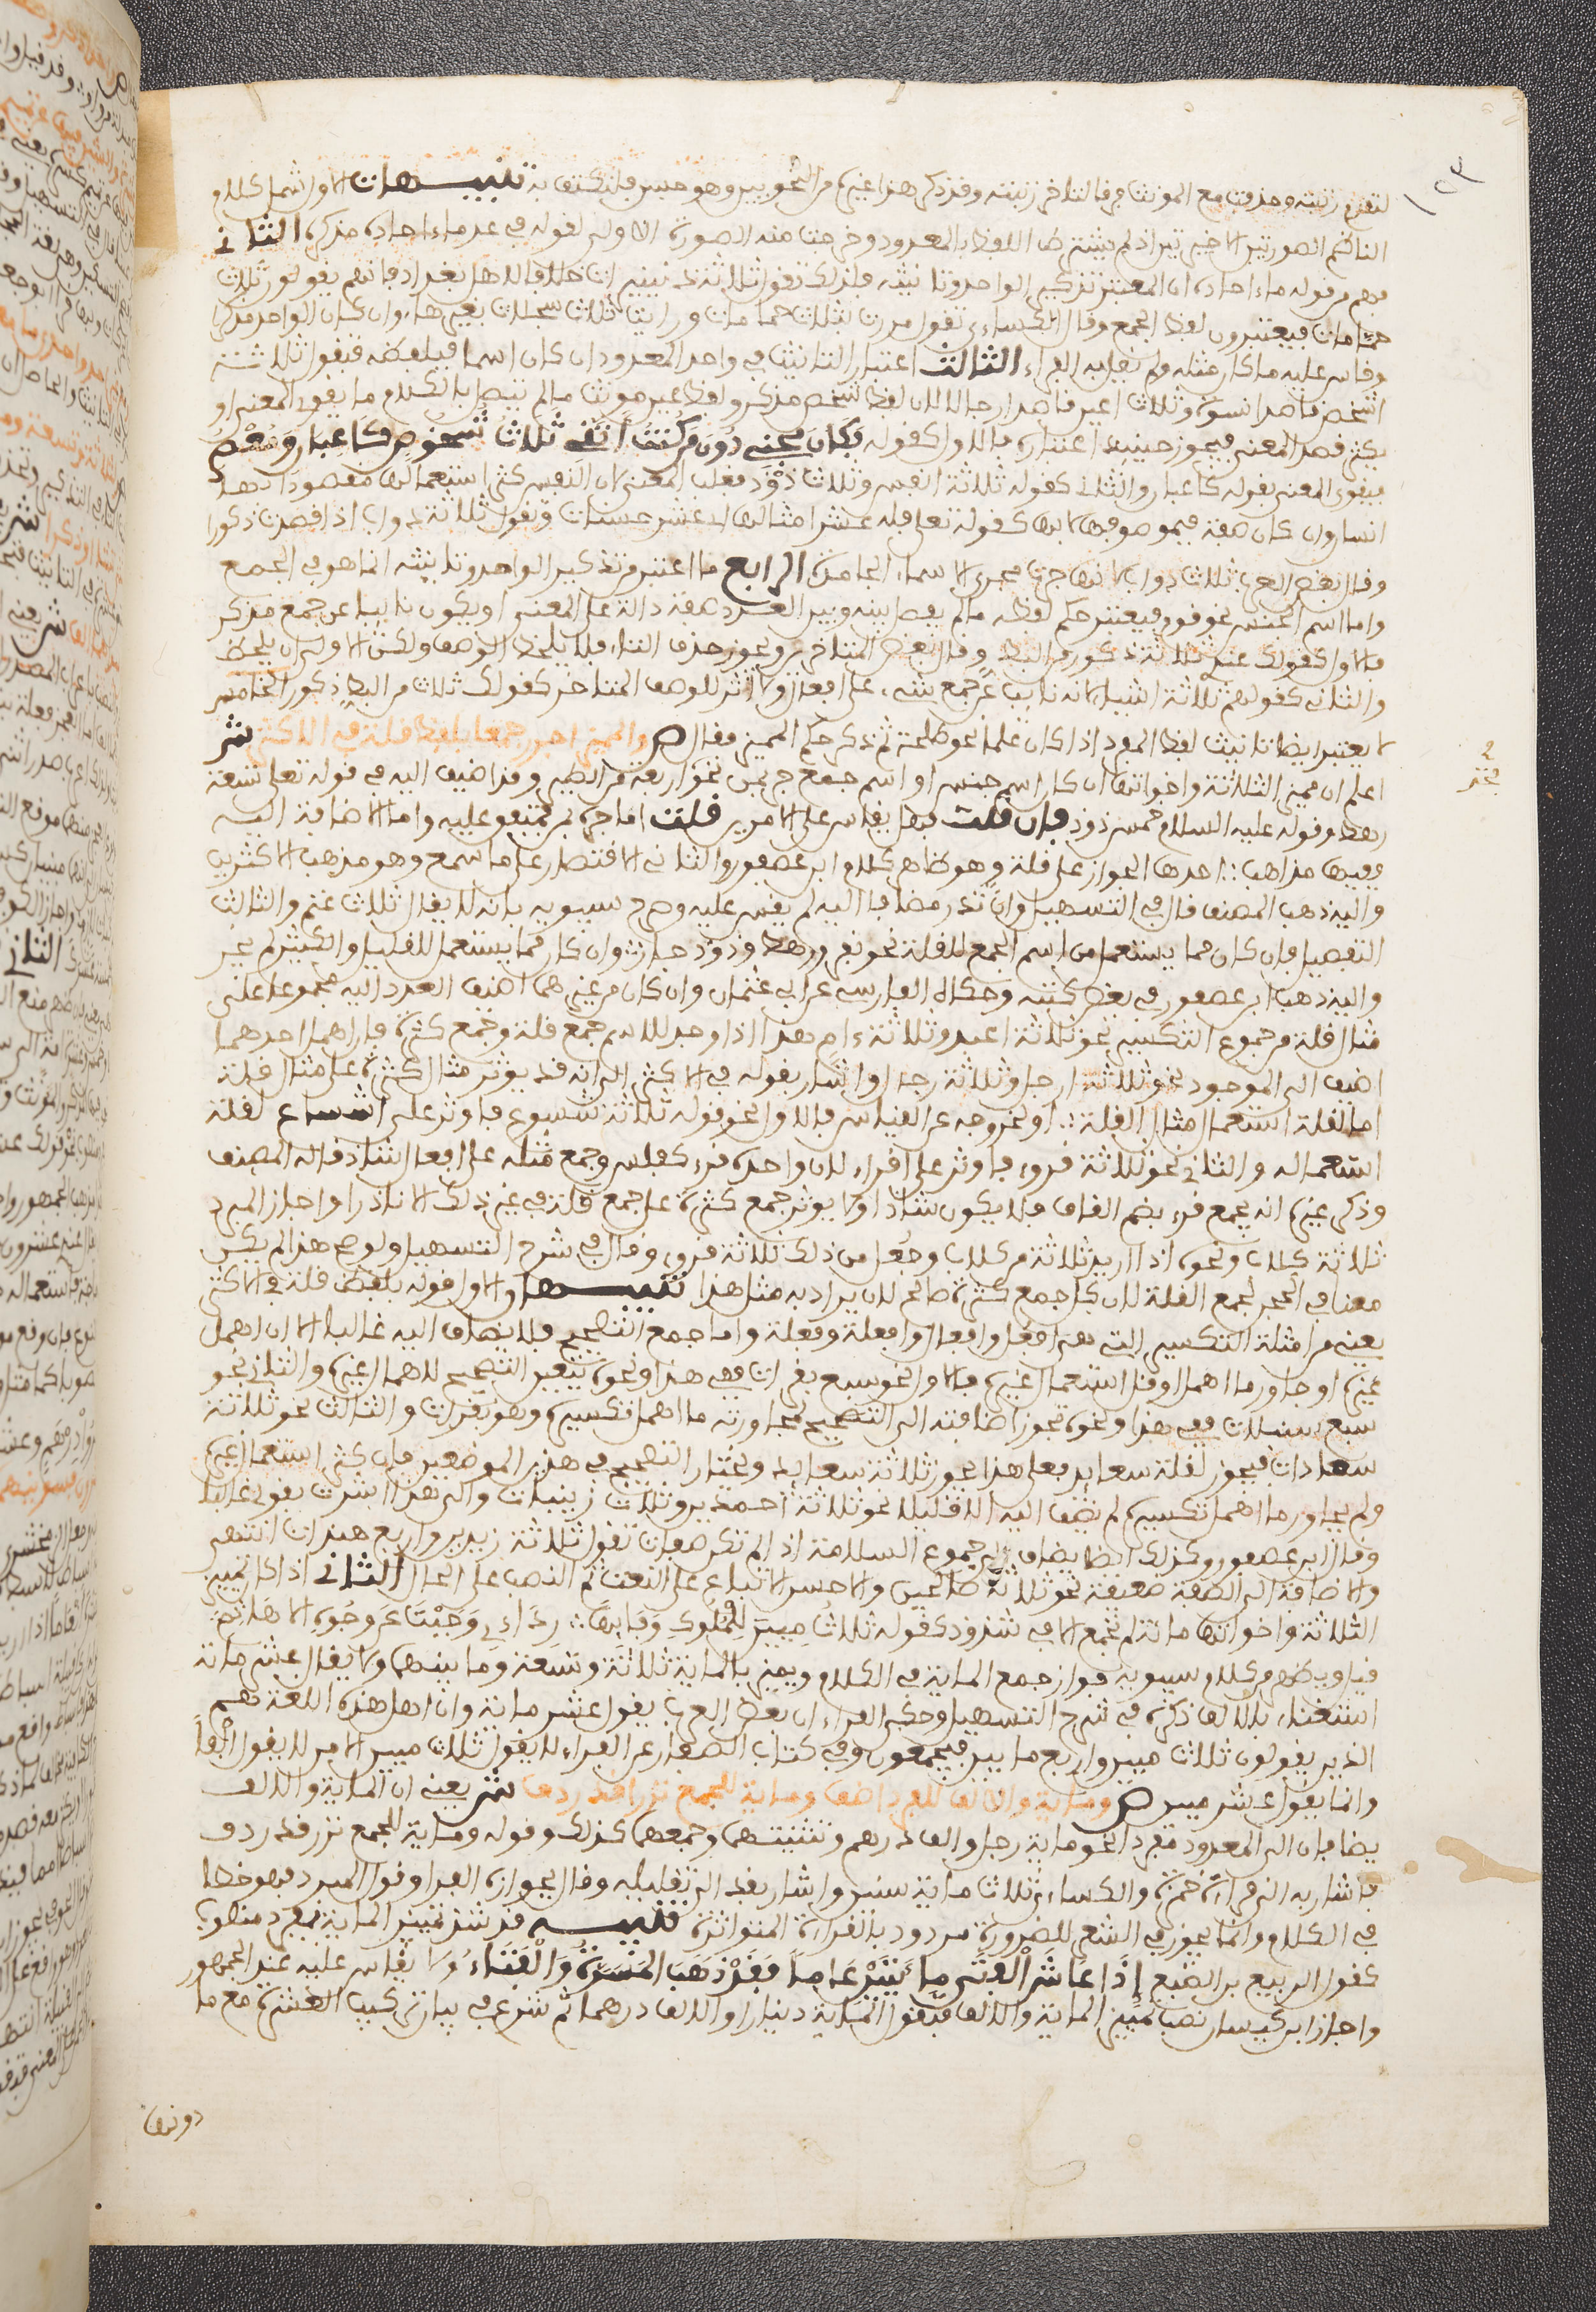 لتقدم رتبته وحذفت مع المونث فرقا لتاخر رتبته وقد ذكر هذا غيره من النحويين وهو حسن فلنكتف به تنبيهات الاول شمل كلام
الناظم الصورتين الاخيرتين اذ لم يشترط اللفظ بالمعدود وخرجت منه الصورة الاولى لقوله في عد ما ءاحاده مذكره الثاني
فهم من قوله ما ءاحاده ان المعتبر تذكير الواحد وتانيثه فلذلك تقول ثلاثة دنينيرات خلافا لاهل بغداد فانهم يقولون ثلاث
حمامات فيعتبرون لفظ الجمع وقال الكساءي تقول مررت بثلاث حمامات ورايت ثلاث سجلات بغير هاء وان كان الواحد مذكرا
وقاس عليه ما كان مثله ولم يقل به الفراء الثالث اعتبار التانيث في واحد المعدود ان كان اسما فبلفظه فتقول ثلاثة
اشخص قاصدا نسوة وثلاث اعين قاصدا رجالا لان لفظ شخص مذكر ولفظ عين مونث ما لم يتصل بالكلام ما يقوي المعنى او
يكثر قصد المعنى فيجوز حينئذ اعتباره فالاول كقوله فَكَانَ مِجَنِّي دُونَ مَن كُنتُ أَتَّقِي ثَلاثُ شُخُوصٍ كَاعِبَانِ وَمُعْصِرُ
فيقوي المعنى بقوله كاعبان والثاني كقوله ثلاثة انفس وثلاث ذود فغلب المعنى لان النفس كثر استعمالها مقصودا بها
انسان وان كان صفة فبموصوفها لا بها كقوله تعالى فله عشر امثالها اي عشر حسنات وتقول ثلاثة دواب اذا قصدت ذكورا
وقال بعض العرب ثلاث دواب لانها جرت مجرى الاسماء الجامدة الرابع ما اعتبر من تذكير الواحد وتانيثه انما هو في الجمع
واما اسم الجنس نحو قوم فيعتبر حكم لفظه ما لم يفصل بينه وبين العدد صفة دالة على المعنى او يكون نايبا عن جمع مذكر
فالاول كقولك عندي ثلاثة ذكور من البط وقال بعض المتاخرين ويجوز حذف التاء فلا يلحظ الوصف ولكن الاولى ان يلحظ
والثاني كقولهم ثلاثة اشياء لانه نايب عن جمع شيء على افعال ولا اثر للوصف المتاخر كقولك ثلاث من البط ذكور الخامس
لا يعتبر ايضا تانيث لفظ المفرد اذا كان علما نحو طلحة ثم ذكر حكم المميز فقال ص والمميز اجرر جمعا بلفظ قلة في الاكثر ش
اعلم ان مميز الثلاثة واخواتها ان كان اسم جنس او اسم جمع جر بمن نحو اربعة من الطير وقد اضيف اليه في قوله تعالى تسعة
رهط وقوله عليه السلام خمس ذود فان قلت فهل يقاس على الامرين قلت اما جره بمن فمتفق عليه واما الاضافة اليه
ففيها مذاهب احدها الجواز على قلة وهو ظاهر كلام ابن عصفور والثاني الاقتصار على ما سمع وهو مذهب الاكثرين
واليه ذهب المصنف قال في التسهيل وان ندر مضافا اليه لم يقس عليه وصرح سيبويه بانه لا يقال ثلاث غنم والثالث
التفصيل فان كان مما يستعمل من اسم الجمع للقلة نحو نفر ورهط وذود جاز وان كان مما يستعمل للقليل والكثير لم يجز
واليه ذهب ابن عصفور في بعض كتبه وحكاه الفارسي عن ابي عثمان وان كان من غيرهما اضيف العدد اليه مجموعا على
مثال قلة من جموع التكسير نحو ثلاثة اعبد وثلاثة ءام هذا اذا وجد للاسم جمع قلة وجمع كثرة فان اهمل احدهما
اضيف الى الموجود نحو ثلاثة ارجل وثلاثة رجال واشار بقوله في الاكثر الى انه قد يوثر مثال كثرة على مثال قلة
اما لقلة استعمال مثال القلة او لخروجه عن القياس فالاول نحو قوله ثلاثة شسوع فاوثر على اشساع لقلة
استعماله والثاني نحو ثلاثة قروء فاوثر على اقراء لان واحده قرء كفلس وجمع مثله على افعال شاذ قاله المصنف
وذكر غيره انه يجمع قرء بضم القاف فلا يكون شاذا ولا يوثر جمع كثرة على جمع قلة في غير ذلك الا نادرا واجاز المبرد
ثلاثة كلاب ونحوه اذا اريد ثلاثة من كلاب وجعل من ذلك ثلاثة قروء وقال في شرح التسهيل ولو صح هذا لم يكن
معنا في الحجر لجمع القلة لان كل جمع كثرة صالح لان يراد به مثل هذا تنبيهان الاول قوله بلفظ قلة في الاكثر
يعني من امثلة التكسير التي هي افعل وافعال وافعلة وفعلة واما جمع التصحيح فلا يضاف اليه غالبا الا ان اهمل
غيره او جاور ما اهمل او قل استعمال غيره فالاول نحو سبع بقرات ففي هذا ونحوه يتعين التصحيح لاهمال غيره والثاني نحو
سبع سنبلات ففي هذا ونحوه تجوز اضافته الى التصحيح لمجاورته ما اهمل تكسيره وهو بقرات والثالث نحو ثلاثة
سعادات فيجوز لقلة سعايد فعلى هذا يجوز ثلاثة سعايد ويختار التصحيح في هذين الموضعين فان كثر استعمال غيره
ولم يجاور ما اهمل تكسيره لم يضف اليه الا قليلا نحو ثلاثة احمدين وثلاث زينبات والى هذا اشرت بقولي غالبا
وقال ابن عصفور وكذلك ايضا يضاف الى جموع السلامة اذا لم تكن صفات تقول ثلاثة زيدين واربع هندات انتهى
والاضافة الى الصفة ضعيفة نحو ثلاثة صالحين والاحسن الاتباع على النعت ثم النصب على الحال الثاني اذا كان تمييز
الثلاثة واخواتها ماية لم تجمع الا في شذوذ كقوله ثَلاثُ مِيينَ لِلْمُلُوكِ وَفَى بِهَا رِدَاءِي وَجَلَّتْ عَن وُجُوهِ الاهَاتِمِ
قيل وظهر من كلام سيبويه جواز جمع الماية في الكلام ويميز بالماية ثلاثة وتسعة وما بينهما ولا يقال عشر ماية
استغناء بالالف ذكره في شرح التسهيل وحكى الفراء ان بعض العرب يقول عشر ماية وان اهل هذه اللغة هم
الذين يقولون ثلاث ميين واربع ميين فيجمعون وفي كتاب الصفار عن الفراء لا يقول ثلاث ميين الا من لا يقول الفا
وانما يقول عشر ميين ص وماية والالف للفرد اضف وماية للجمع نزرا قد ردف ش يعني ان الماية والالف
يضافان الى المعدود مفردا نحو ماية رجل والف درهم وتثنيتهما وجمعهما كذلك وقوله وماية للجمع نزرا قد ردف
فاشار به الى قراءة حمزة والكساءي ثلاث ماية سنين واشار بقد الى تقليله وقال بجوازه الفراء وقول المبرد فهو خطا
في الكلام وانما يجوز في الشعر للضرورة مردود بالقراءة المتواترة تنبيه قد شذ تمييز الماية بمفرد منصوب
كقول الربيع بن الضبع إِذَا عَاشَ الْفَتَى مِايَتَيْنِ عَامًا فَقَدْ ذَهَبَ الْمَسَرَّةُ وَالْفَتَاءُ ولا يقاس عليه عند الجمهور
واجاز ابن كيسان نصب تمييز الماية والالف فتقول الماية دينارا والالف درهما ثم شرع في بيان تركيب العشرة مع ما
دونها
١٢٣